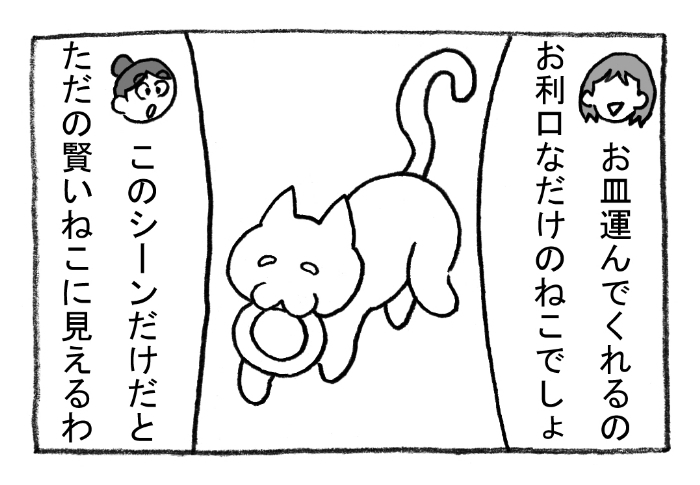 お皿運んでくれるの
お利口なだけのねこでしょ
このシーンだけだと
ただの賢いねこに見えるわ